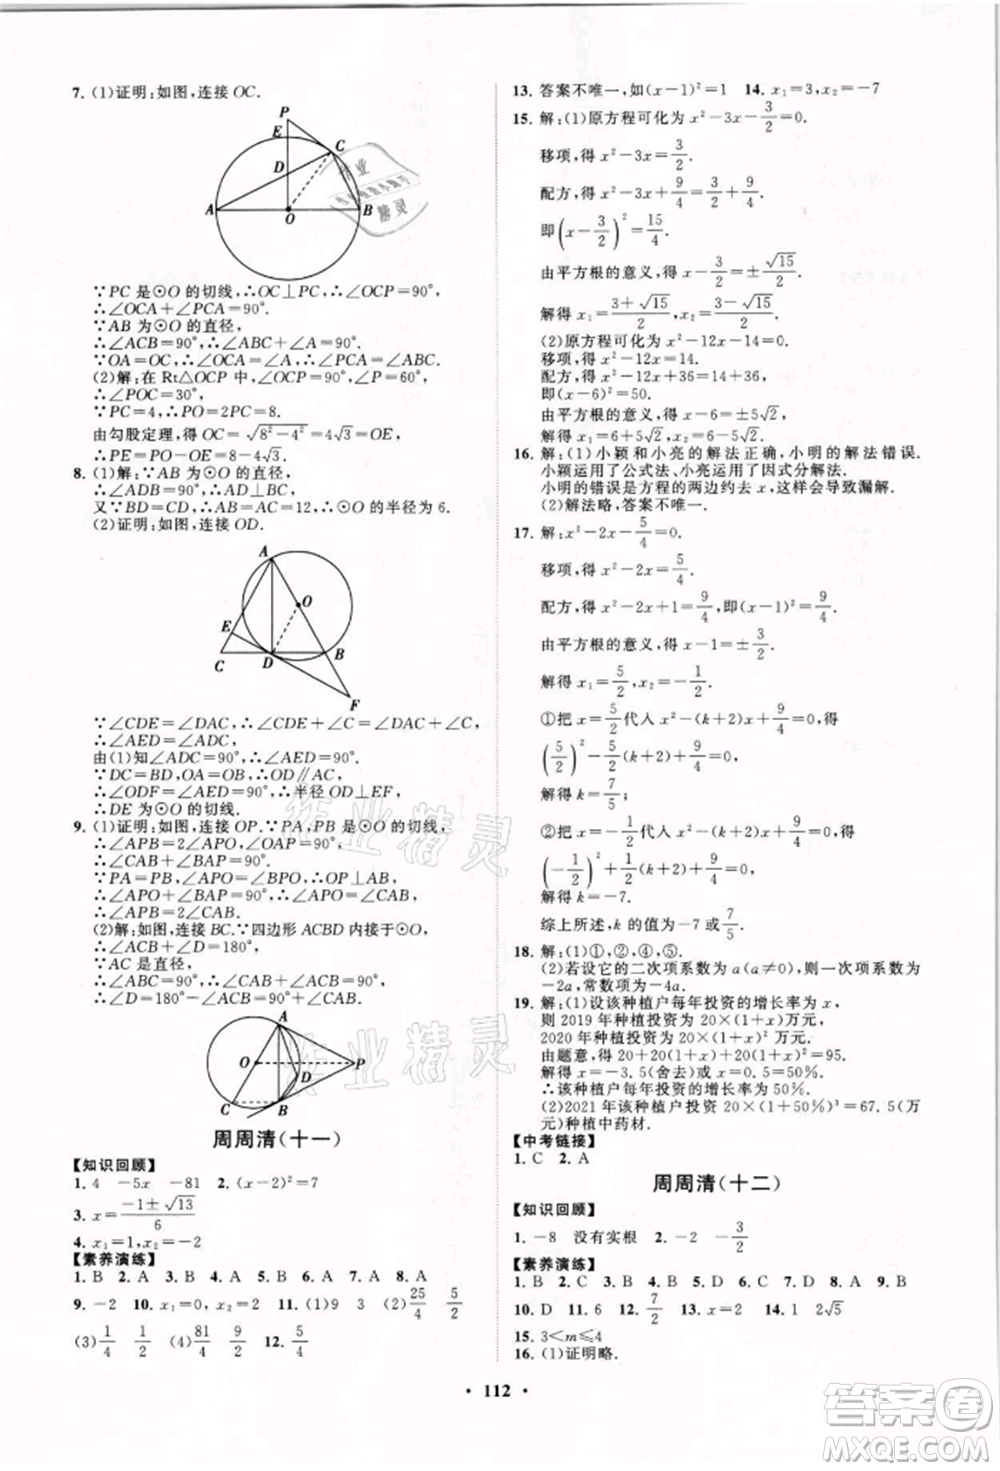 7. (1)证明:如图,连接 OC.
P
E
C
D
A
O
B
∵PC 是⊙O 的切线,∴OC⊥PC,∴∠OCP=90°,
∴∠OCA+∠PCA=90°.
∵AB 为⊙O 的直径,
∴∠ACB=90°,∴∠ABC+∠A=90°.
∵OA=OC,∴∠OCA=∠A,∴∠PCA=∠ABC.
(2)解:在 Rt△OCP 中,∠OCP=90°,∠P=60°,
∴∠POC=30°,
∵PC=4,∴PO=2PC=8.
由勾股定理,得 OC=√(8²-4²)=4√3=OE,
∴PE=PO-OE=8-4√3.
8. (1)解:∵AB 为⊙O 的直径,
∴∠ADB=90°,∴AD⊥BC.
又∵BD=CD,∴AB=AC=12,∴⊙O 的半径为 6.
(2)证明:如图,连接 OD.
A
O
E
C
D
B
F
∵∠CDE=∠DAC,∴∠CDE+∠C=∠DAC+∠C,
∴∠AED=∠ADC.
由(1)知∠ADC=90°,∴∠AED=90°.
∵DC=BD,OA=OB,∴OD∥AC.
∴∠ODF=∠AED=90°,∴半径 OD⊥EF,
∴DE 为⊙O 的切线.
9. (1)证明:如图,连接 OP.∵PA,PB 是⊙O 的切线,
∴∠APB=2∠APO,∠OAP=90°.
∴∠CAB+∠BAP=90°.
∵PA=PB,∴OP⊥AB,∴∠APO+∠BAP=90°.
∴∠APO=∠CAB,
∴∠APB=2∠CAB.
(2)解:如图,连接 BC.∵四边形 ACBD 内接于⊙O,
∴∠ACB+∠D=180°,
∵AC 是直径,
∴∠ABC=90°,∴∠CAB+∠ACB=90°,
∴∠D=180°-∠ACB=90°+∠CAB.
A
O
P
D
C
B
周周清(十一)
【知识回顾】
1. 4 -5x -81 2. (x-2)²=7
3. x=(-1±√13)/6
4. x₁=1,x₂=-2
【素养演练】
1. B 2. A 3. B 4. A 5. B 6. B 7. A 8. A
9. -2 10. x₁=0,x₂=2 11. (1)9 3 (2)25/4 5/2
(3)1/4 1/2 (4)81/4 9/2 12. 5/4
13. 答案不唯一,如(x-1)²=1 14. x₁=3,x₂=-7
15. 解:(1)原方程可化为 x²-3x-3/2=0.
移项,得 x²-3x=3/2.
配方,得 x²-3x+9/4=3/2+9/4,
即(x-3/2)²=15/4.
由平方根的意义,得 x-3/2=±√15/2,
解得 x₁=(3+√15)/2,x₂=(3-√15)/2.
(2)原方程可化为 x²-12x-14=0.
移项,得 x²-12x=14.
配方,得 x²-12x+36=14+36,
即(x-6)²=50.
由平方根的意义,得 x-6=±5√2,
解得 x₁=6+5√2,x₂=6-5√2.
16. 解:(1)小颖和小亮的解法正确,小明的解法错误.
小颖运用了公式法、小亮运用了因式分解法.
小明的错误是方程的两边约去 x,这样会导致漏解.
(2)解法略,答案不唯一.
17. 解:x²-2x-5/4=0.
移项,得 x²-2x=5/4.
配方,得 x²-2x+1=9/4,即(x-1)²=9/4.
由平方根的意义,得 x-1=±3/2,
解得 x₁=5/2,x₂=-1/2.
①把 x=5/2代人 x²-(k+2)x+9/4=0,得
(5/2)²-5/2(k+2)+9/4=0,
解得 k=7/5;
②把 x=-1/2代人 x²-(k+2)x+9/4=0,得
(-1/2)²+1/2(k+2)+9/4=0,
解得 k=-7.
综上所述,k 的值为-7 或7/5.
18. 解:(1)①,②,④,⑤.
(2)若设它的二次项系数为 a(a≠0),则一次项系数为
-2a,常数项为-4a.
19. 解:(1)设该种植户每年投资的增长率为 x,
则 2019 年种植投资为 20×(1+x)万元,
2020 年种植投资为 20×(1+x)² 万元.
由题意,得 20+20(1+x)+20(1+x)²=95.
解得 x=-3.5(舍去)或 x=0.5=50%.
∴该种植户每年投资的增长率为 50%.
(2)2021 年该种植户投资 20×(1+50%)³=67.5(万
元)种植中药材.
【中考链接】
1. C 2. A
周周清(十二)
【知识回顾】
1. -8 没有实根 2. -2 -3/2
【素养演练】
1. B 2. C 3. D 4. A 5. D 6. A 7. C 8. A 9. B
10. D 11. 6 12. 7/2 13. x=2 14. 1 2√5
15. 3<m≤4
16. (1)证明略.
• 112 •
作业精灵
作业精灵
答案圈
MXQE.COM